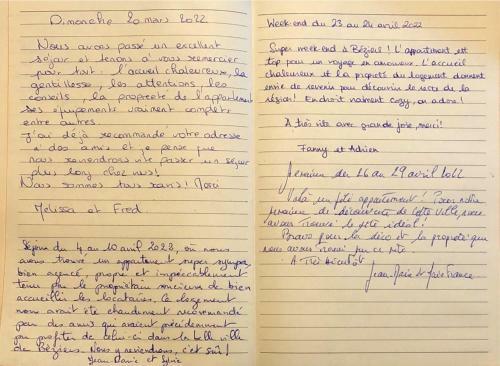 Dimanche 20 mars 2022
Nous avons passé un excellent
séjour et tenons à vous remercier
pour tout : l'accueil chaleureux, la
gentillesse, les attentions, les
conseils, la propreté de l'appartement
ses équipements vraiment complets
entre autres.
J'ai déjà recommandé votre adresse
à des amis et je pense que
nous reviendrons vite passer un séjour
plus long chez vous!
Nous sommes tous ravis! Merci
Melissa et Fred
Séjour du 4 au 10 avril 2022, où nous
avons trouvé un appartement super sympa,
bien agencé, propre et impeccablement
tenu par le propriétaire soucieux de bien
accueillir les locataires. Le logement
nous avait été chaudement recommandé
par des amis qui avaient précédemment
pu profiter de celui-ci dans la belle ville
de Béziers. Nous y reviendrons, c'est sûr!
Jean-Marie et Sylvie
Week-end du 23 au 24 avril 2022
Super week-end à Béziers! L'appartement est
top pour un voyage en amoureux. L'accueil
chaleureux et la propreté du logement donnent
envie de revenir pour découvrir le reste de la
région! Endroit vraiment cozy, on adore!
A très vite avec grande joie, merci!
Fanny et Adrien
Semaine du 26 au 29 avril 2022
Voilà un ptit appartement! Pour notre
semaine de découverte de cette ville, nous
avons trouvé le pité idéal!
Bravo pour la déco et la propreté que
nous avons trouvé par ce pité.
A Très bientôt
Jean Marie et Marie France